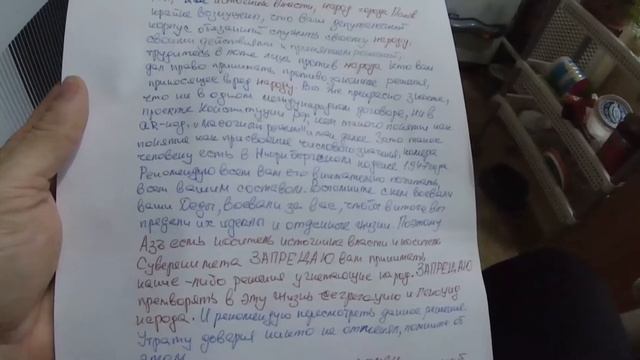 источник власти, народ города Псков
крайне возмущены, что вам депутатский
корпус обязанный служить своему народу,
своими действиями и принятием решений,
трудитесь в поте лица против народа. Кто вам
дал право принимать противозаконные решения,
приносящее вред народу. Вы же прекрасно знаете,
что ни в одном международном договоре, ни в
проекте Конституции РФ, нет такого понятия как
QR-код, „масочный режим" и так далее. Зато такое
понятие как присвоение числового значения, номера
человеку есть в Нюрнбергском кодексе 1947 года
Рекомендую всем вам его внимательно почитать,
всем вашим составом. Вспомните с кем воевали
ваши Деды, воевали за вас, чтобы в итоге вы
предали их идеалы и отданные жизни. Поэтому
Азъ есть носитель источника власти и носитель
Суверенитета ЗАПРЕЩАЮ вам принимать
какие-либо решения угнетающие народ. ЗАПРЕЩАЮ
претворять в эту жизнь сегрегацию и геноцид
народа. И рекомендую пересмотреть данное решение.
Утрату доверия никто не отменял, помните об
этом